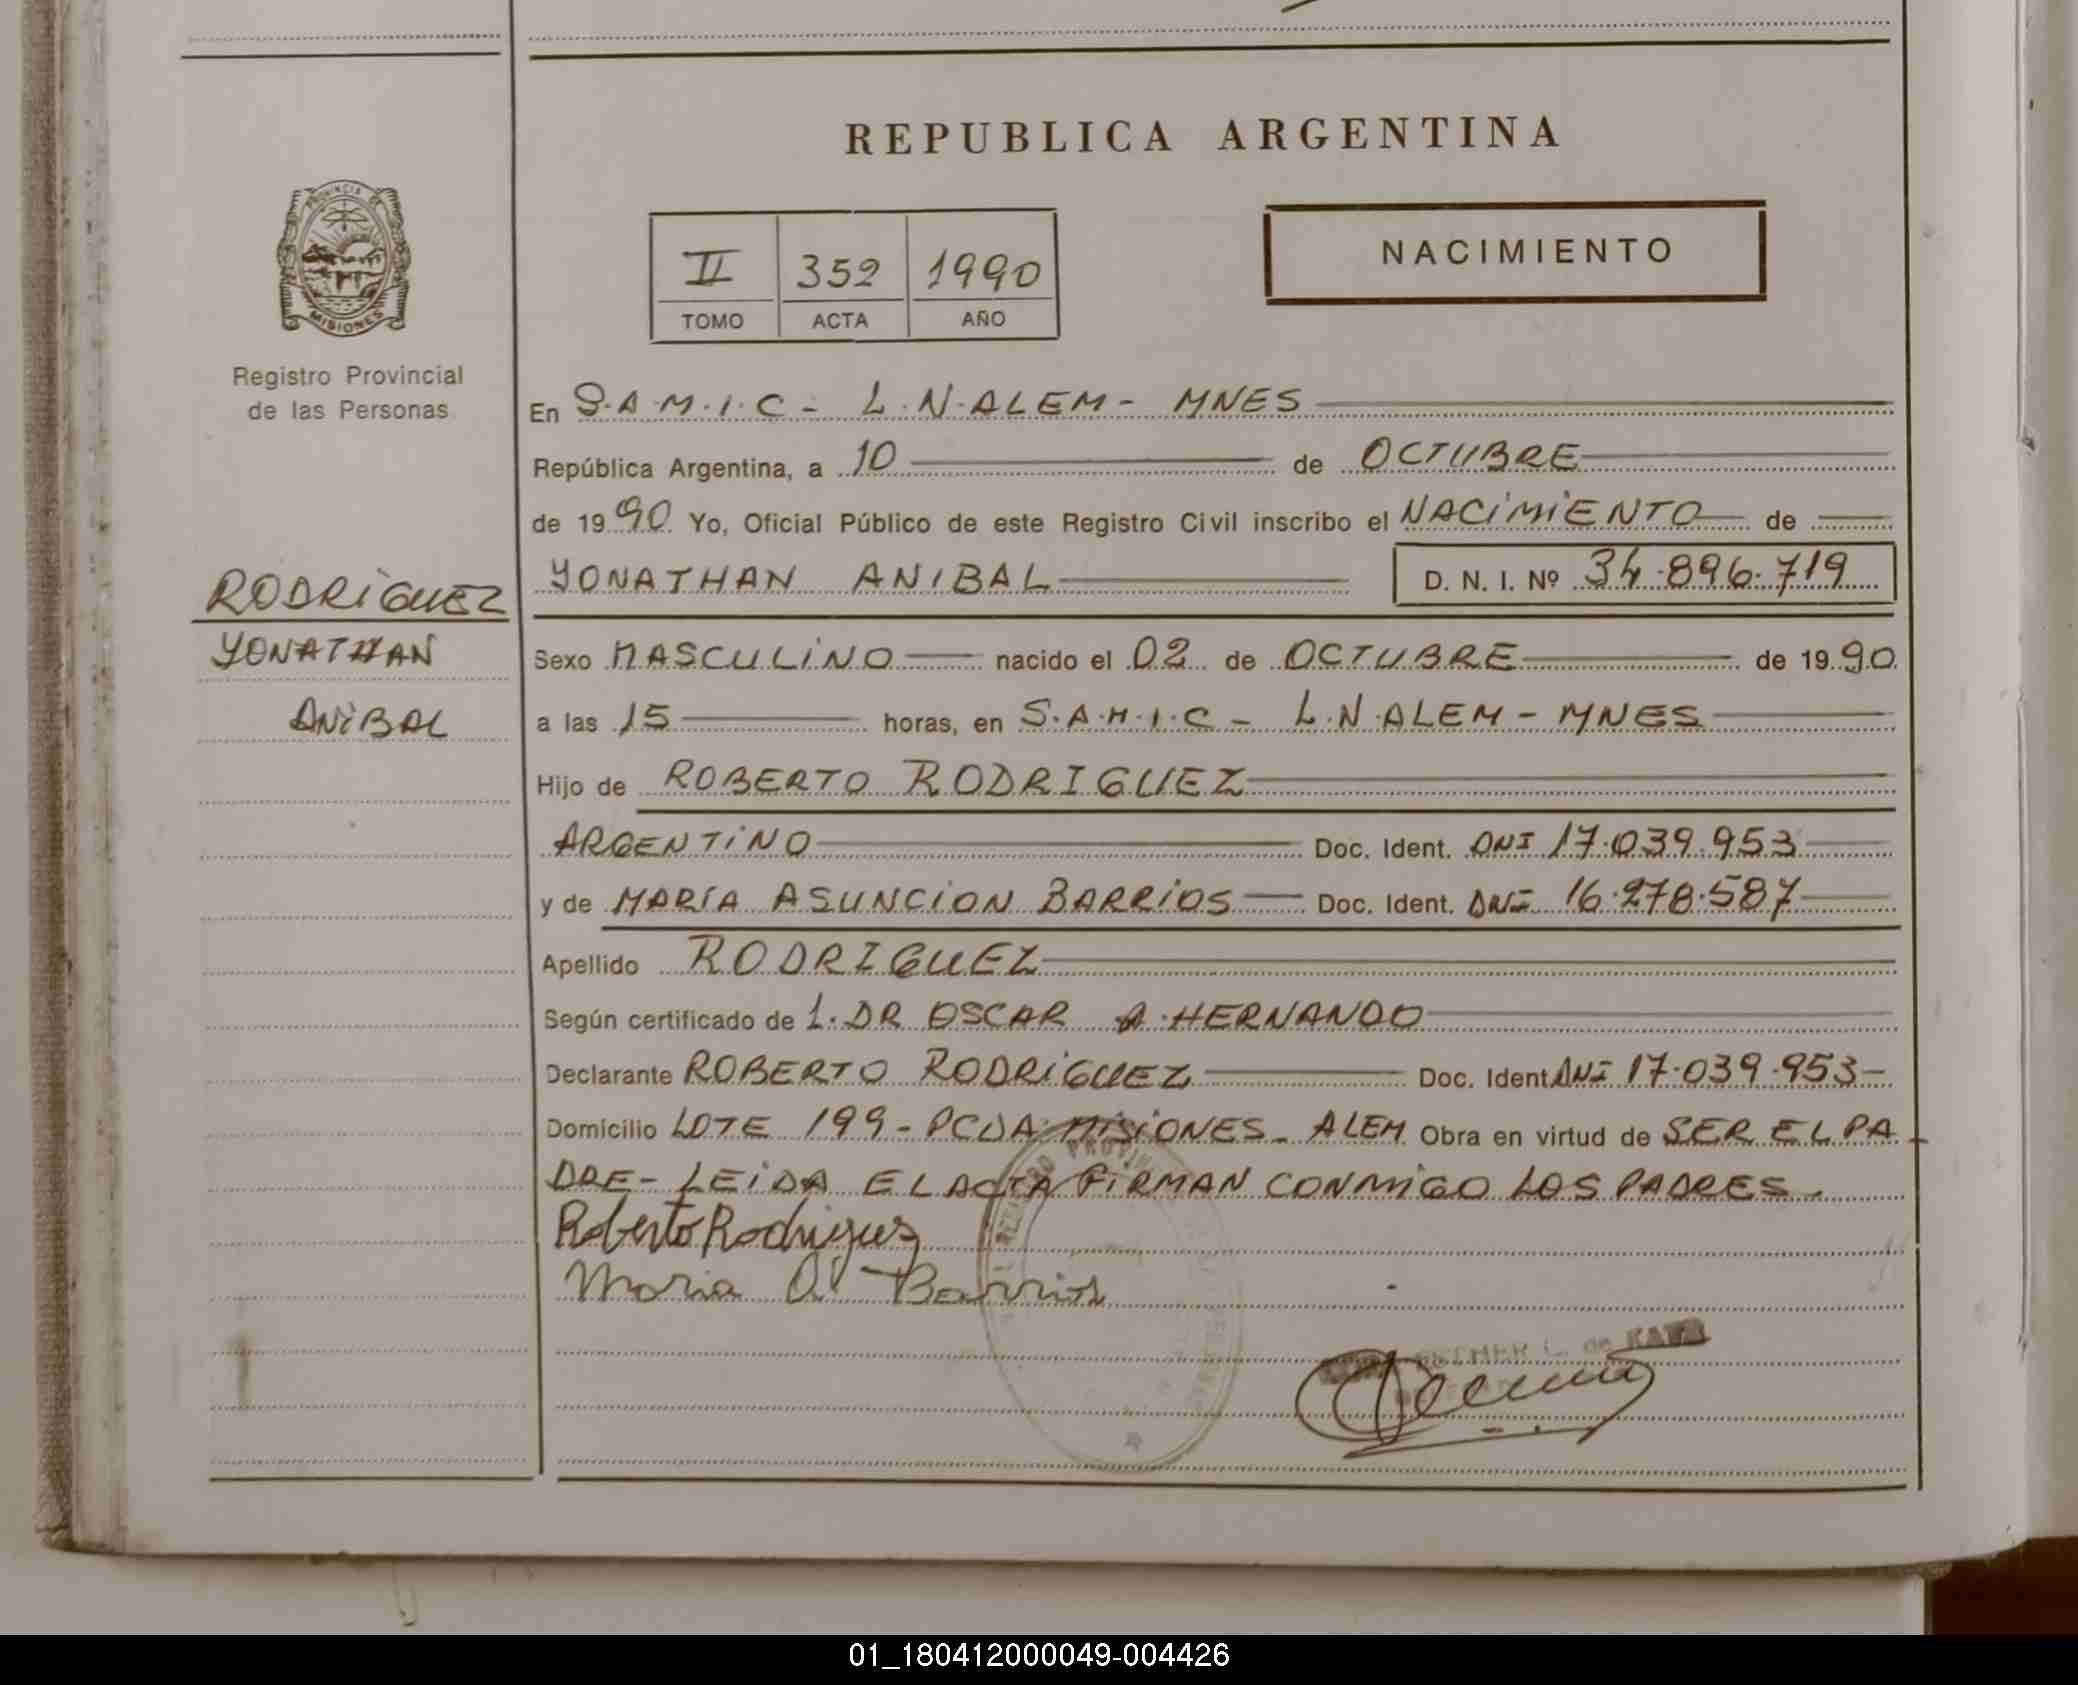 REPUBLICA ARGENTINA
NACIMIENTO
II 352 1990
TOMO ACTA AÑO
PROVINCIA DE
MISIONES
Registro Provincial
de las Personas
RODRIGUEZ
YONATHAN
ANIBAL
En S.A.M.I.C - L.N.ALEM - MNES
República Argentina, a 10 de OCTUBRE
de 1990 Yo, Oficial Público de este Registro Civil inscribo el NACIMIENTO de
YONATHAN ANIBAL D. N. I. Nº 34.896.719
Sexo MASCULINO nacido el 02 de OCTUBRE de 1990
a las 15 horas, en S.A.M.I.C - L.N.ALEM - MNES
Hijo de ROBERTO RODRIGUEZ
ARGENTINO Doc. Ident. DNI 17.039.953
y de MARIA ASUNCION BARRIOS Doc. Ident. DNI 16.278.587
Apellido RODRIGUEZ
Según certificado de L. DR OSCAR A. HERNANDO
Declarante ROBERTO RODRIGUEZ Doc. Ident DNI 17.039.953
Domicilio LOTE 199 - PCDA MISIONES - ALEM Obra en virtud de SER EL PA
DRE - LEIDA EL ACTA FIRMAN CONMIGO LOS PADRES.
Roberto Rodriguez
Maria A. Barrios
ESTHER L. de
01_180412000049-004426